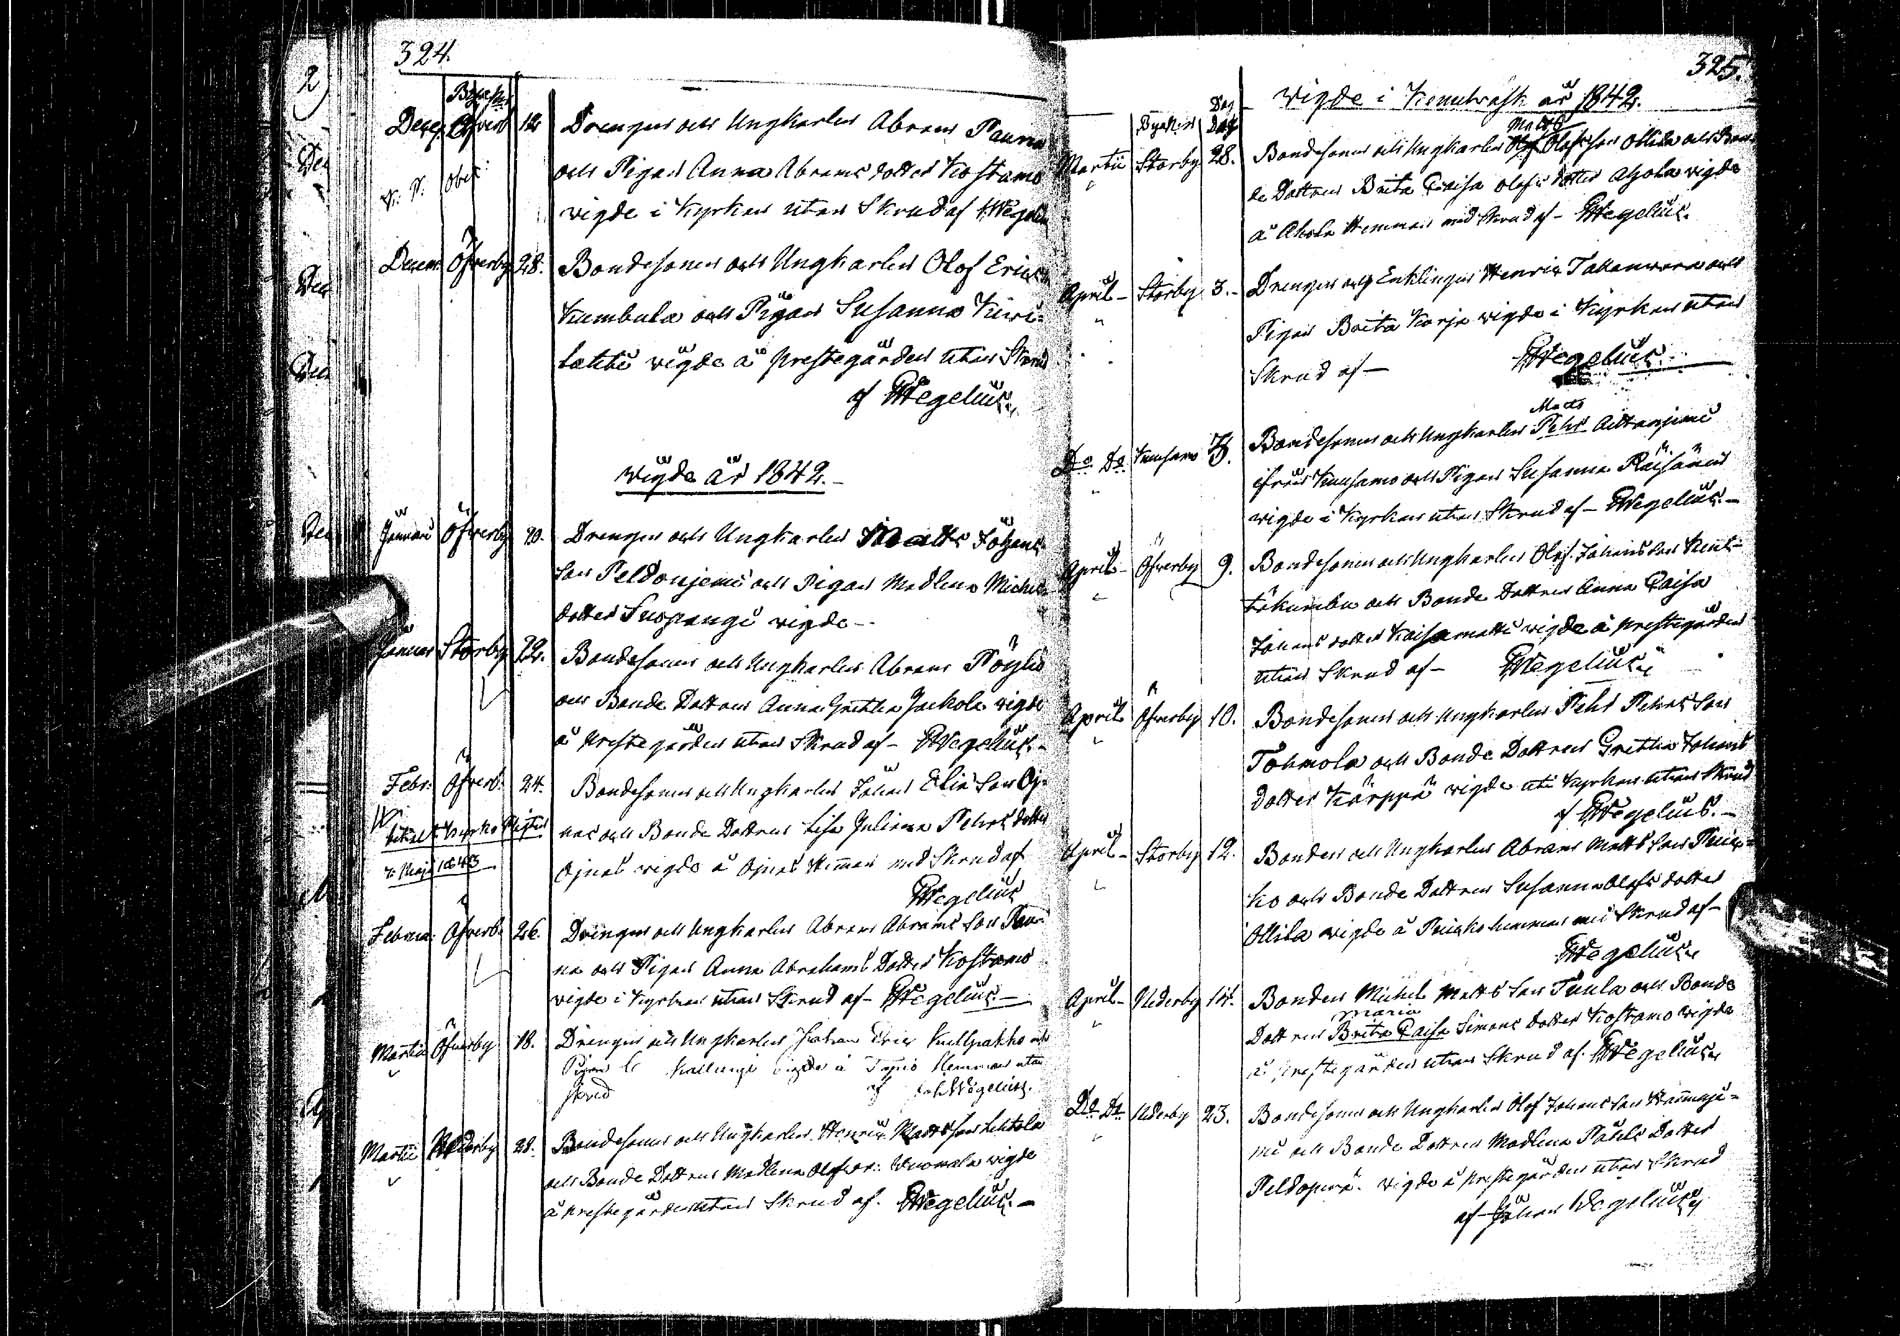 324.
Byarne
Decem. Öfverb. 12. Drengen och Ungkarlen Abram Paurna
och Pigan Anna Abrams dotter Kostamo
vigde i Kyrkan utan Skrud af Wegelius
Decem. Öfverby 28. Bondesonen och Ungkarlen Olof Ericss.
Kumbula och Pigan Susanna Kuri-
lehti vigde å prestegården utan Skrud
af Wegelius.
vigde år 1842.
Januari Öfverby 20. Drengen och Ungkarlen Matts Johans
Son Peldonjemi och Pigan Madlena Michels
dotter Suopangi vigde
Januar Storby 22. Bondesonen och Ungkarlen Abram Pöyliö
och Bonde Dottren Anna Gretha Jaekola vigde
å prestegården utan Skrud af Wegelius
Febr. Öfverb. 24. Bondesonen och Ungkarlen Johan Elia Son Oj-
nas och Bonde Dottren Lisa Juliana Pehrs dotter
Ojnas vigde å Ojnas Heman med Skrud af
Wegelius
Maji 1843
Februa. Öfverb. 26. Drengen och Ungkarlen Abram Abrams Son Paur-
na och Pigan Anna Abrahams Dotter Kostamo
vigde i Kyrkan utan Skrud af Wegelius
Martii Öfverby 18. Drengen och Ungkarlen Johan Eric
Pigan Kallungi vigde å Hemman utan
skrud af Joh. Wegelius.
Martii Nederby 28. Bondesonen och Ungkarlen Henric Matts Son Lehtola
och Bonde Dottren Madlena Olofs Dr. Wuomala vigde
å prestegården utan Skrud af Wegelius
325.
vigde i Kemiträsk år 1842.
Byarne Dag
Martii Storby 28. Bondesonen och Ungkarlen Matts Olofs Son Ollila och Bon-
de Dottren Brita Caisa Olofs dotter Ahola vigde
å Ahola Hemman med Skrud af Wegelius.
April Storby 3. Drengen och Enklingen Henric Takanvara och
Pigan Brita Karja vigde i Kyrkan utan
Skrud af Wegelius
Matts
Do Do Kuusamo 3. Bondesonen och Ungkarlen Pehr Aittanjemi
ifrån Kuusamo och Pigan Susanna Räisänen
vigde i Kyrkan utan Skrud af Wegelius
April Öfverby 9. Bondesonen och Ungkarlen Olof Johans Son Kent-
täkumbu och Bonde Dottren Anna Caisa
Johans dotter Kaisamatti vigde å prestegården
utan Skrud af Wegelius
April Öfverby 10. Bondesonen och Ungkarlen Pehr Pehrs Son
Tohmola och Bonde Dottren Gretha Johans
dotter Kärppä vigde uti Kyrkan utan Skrud
af Wegelius.
April Storby 12. Bonden och Ungkarlen Abram Matts Son Puis-
ko och Bonde Dottren Susanna Olofs dotter
Ollila vigde å Puisko hemman med Skrud af
Wegelius
April Nederby 14. Bonden Michel Matts Son Tuula och Bonde
Maria
Dottren Brita Caisa Simons dotter Kostamo vigde
å prestegården utan Skrud af Wegelius
Do Do Nederby 23. Bondesonen och Ungkarlen Olof Johans Son Hannuje-
mi och Bonde Dottren Madlena Påhls Dotter
Peldoperä. vigde å prestegården utan Skrud
af Johan Wegelius